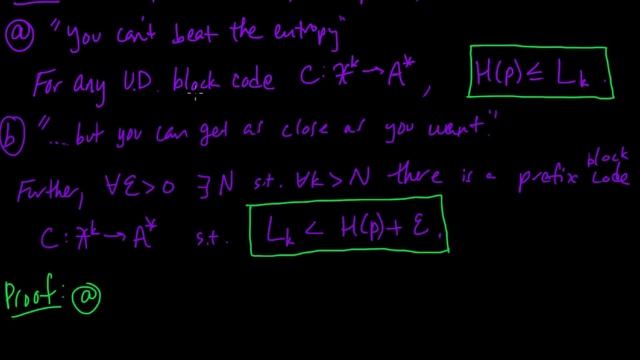 ⓐ "You can't beat the entropy"
For any U.D. block code C: X^k → A^*, H(p) ≤ L_k.
ⓑ "... but you can get as close as you want."
Further, ∀ε>0 ∃N s.t. ∀k>N there is a prefix block code
C: X^k → A^* s.t. L_k < H(p) + ε.
Proof: ⓐ